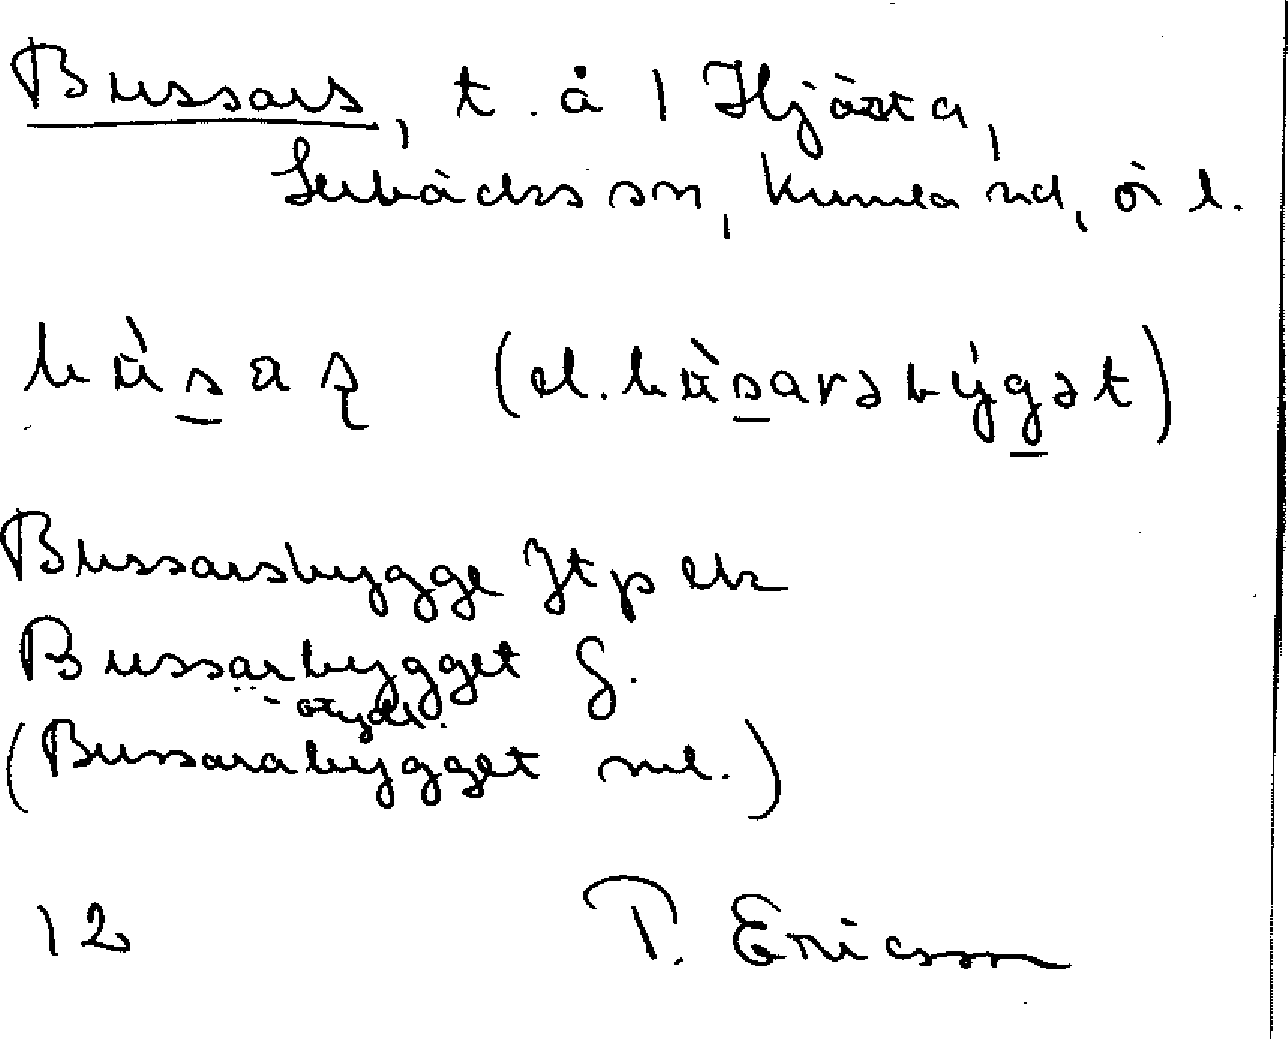 Bussars, t. å 1 Hjärta,
Lerbäcks sn, Kumla hd, ör l.
bùsaʂ (el. bùsarsbýgət)
Bussarsbygge Jtp ek
Bussarbygget G.
(Bussarabygget ml.)
12 T. Ericsson